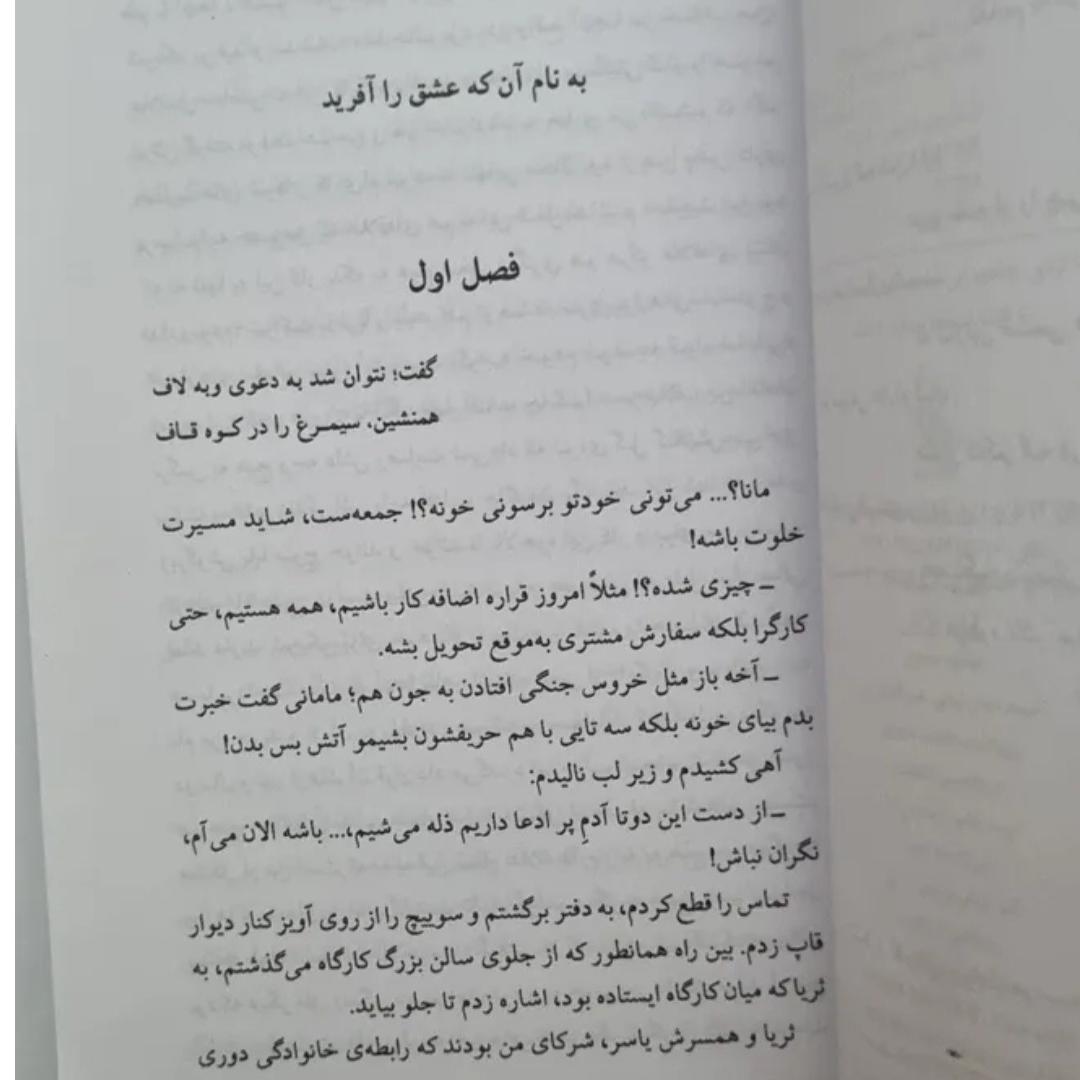 به نام آن که عشق را آفرید
فصل اول
گفت؛ نتوان شد به دعوی وبه لاف
همنشین، سیمـرغ را در کـوه قـاف
مانا؟... می‌تونی خودتو برسونی خونه؟! جمعه‌ست، شـاید مسیرت
خلوت باشه!
ـ چیزی شده؟! مثلاً امروز قراره اضافه کار باشیم، همه هستیم، حتی
کارگرا بلکه سفارش مشتری به‌موقع تحویل بشه.
ـ آخه باز مثل خروس جنگی افتادن به جون هم؛ مامانی گفت خبرت
بدم بیای خونه بلکه سه تایی با هم حریفشون بشیمو آتش بس بدن!
آهی کشیدم و زیر لب نالیدم:
ـ از دست این دوتا آدمِ پر ادعا داریم ذله می‌شیم،... باشه الان می‌آم،
نگران نباش!
تماس را قطع کردم، به دفتر برگشتم و سوییچ را از روی آویز کنار دیوار
قاپ زدم. بین راه همانطور که از جلوی سالن بزرگ کارگاه می‌گذشتم، به
ثریا که میان کارگاه ایستاده بود، اشاره زدم تا جلو بیاید.
ثریا و همسرش یاسر، شرکای من بودند که رابطه‌ی خانوادگی دوری